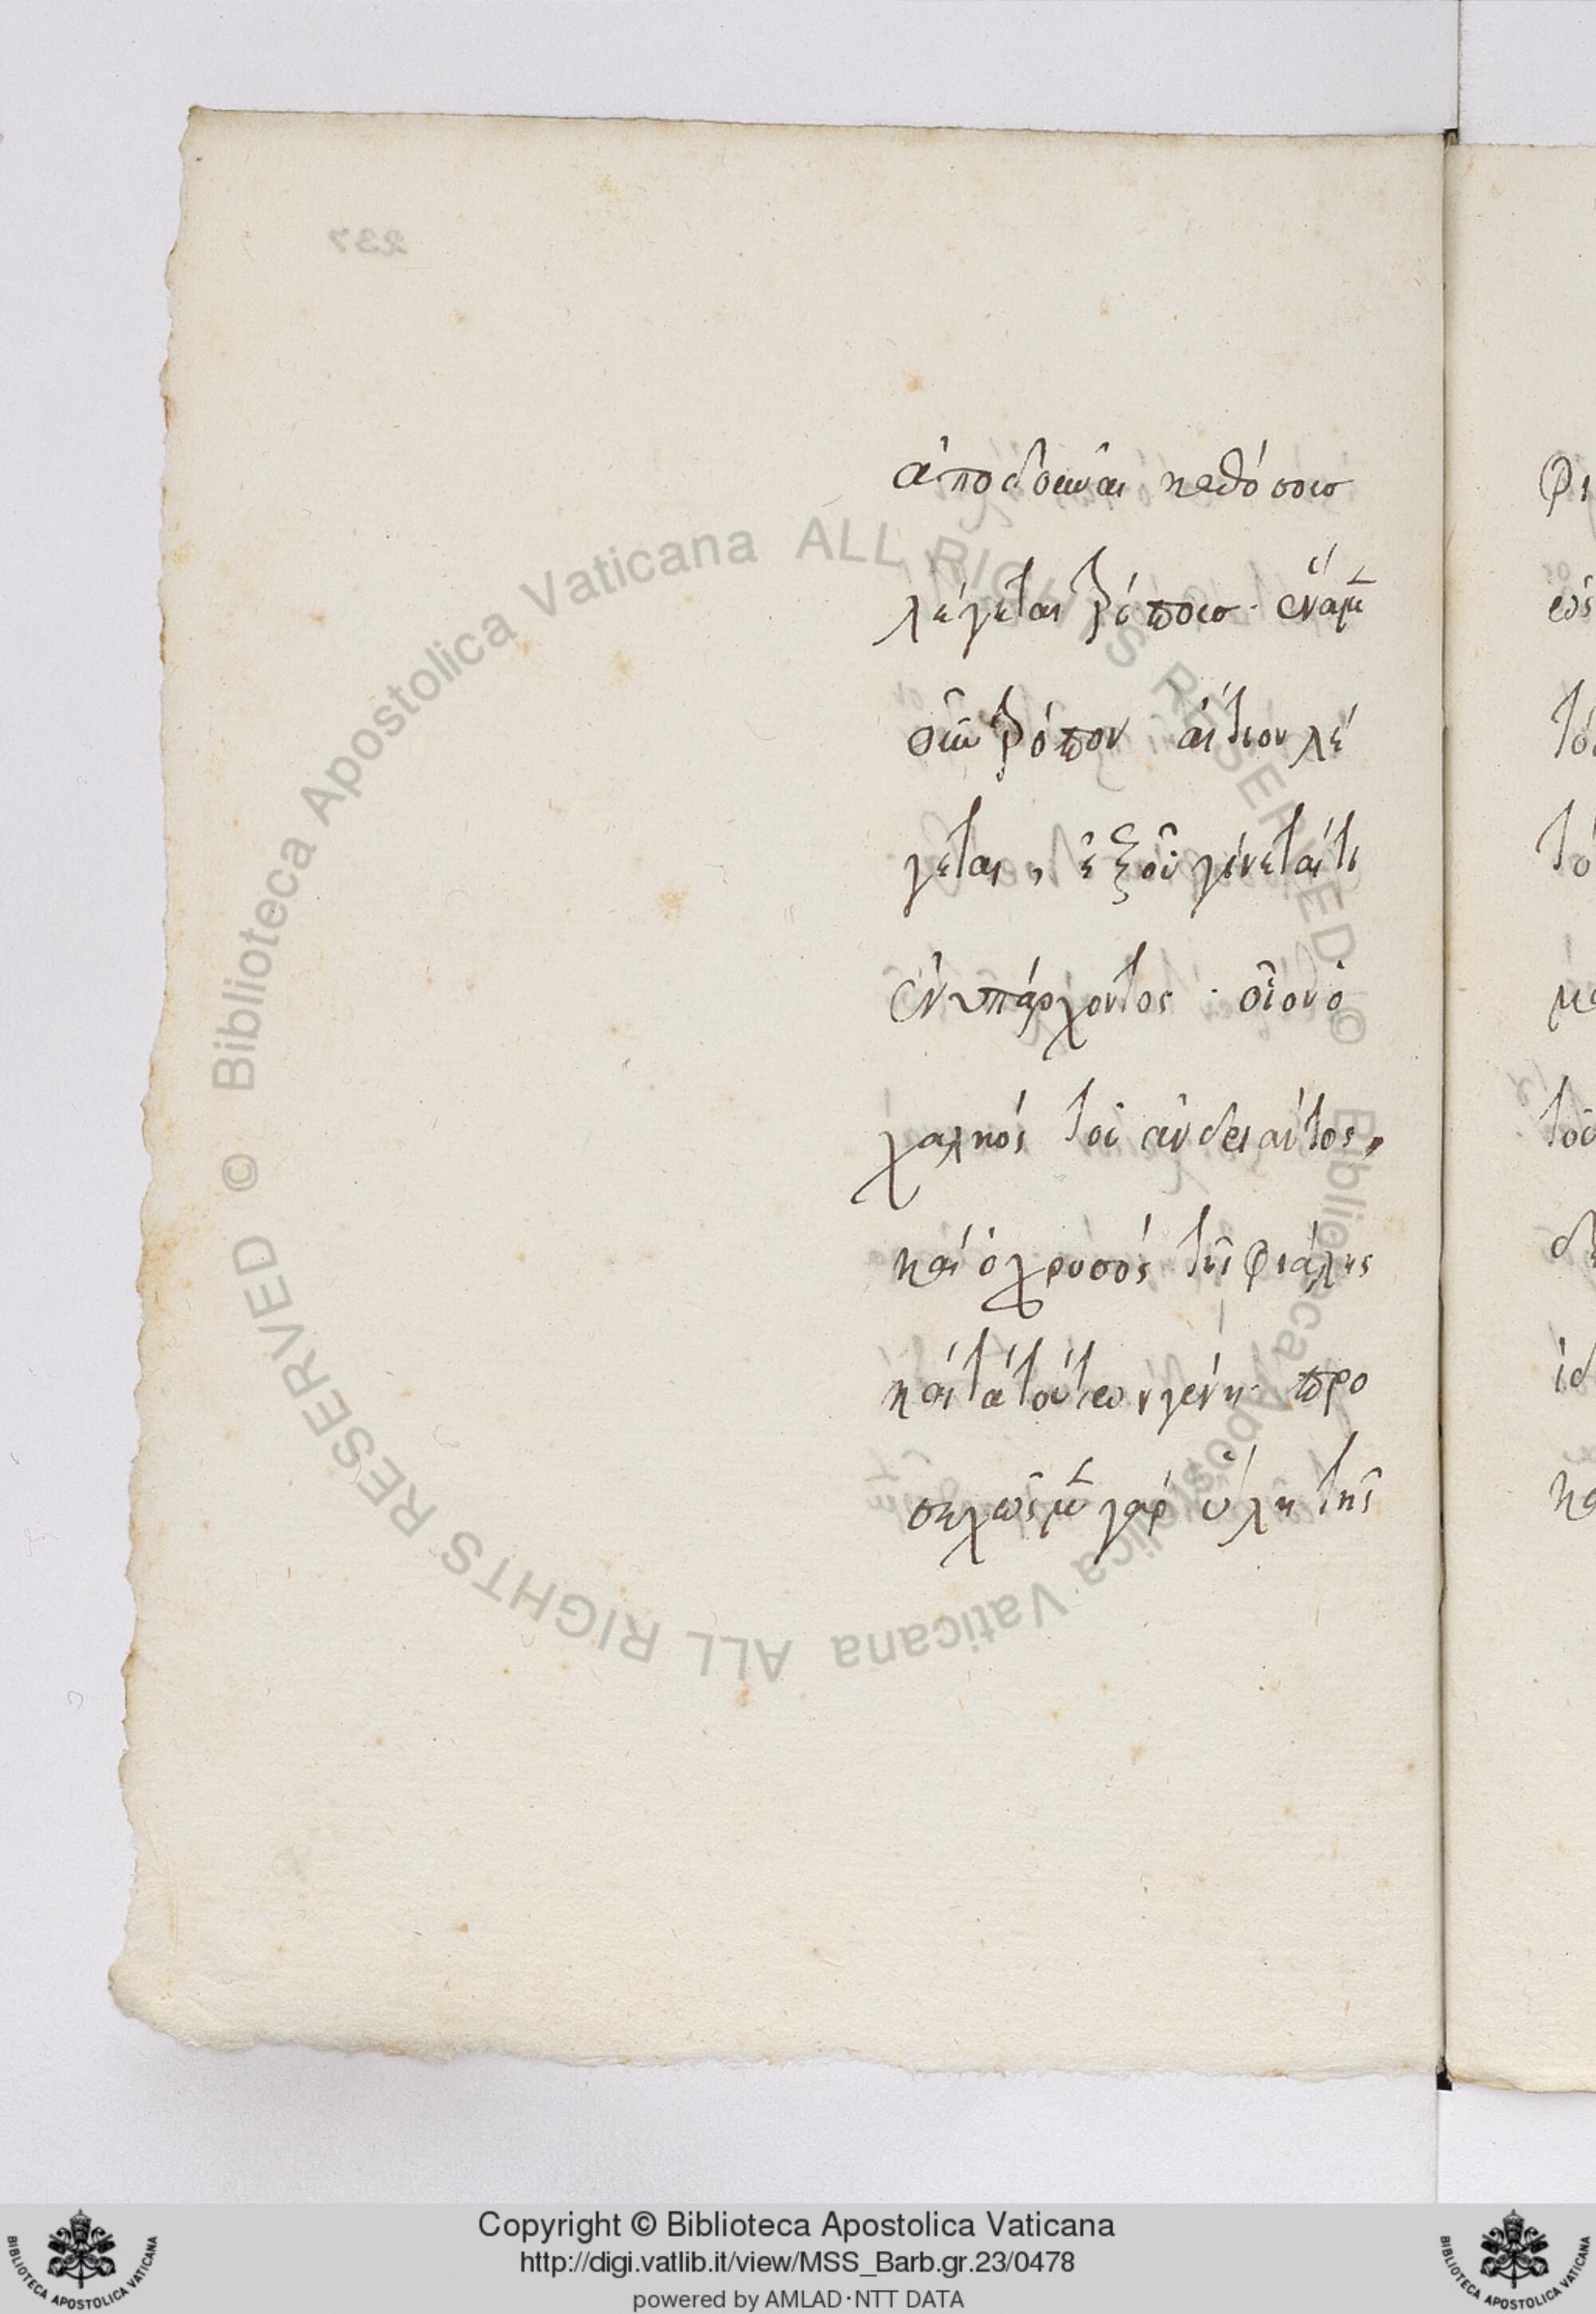 ἀποδοῦναι καθόσους
λέγεται τρόπους· ἕνα μὲν
οὖν τρόπον αἴτιον λέ
γεται, ἐξ οὗ γίνεταί τι
ἐνυπάρχοντος· οἷον ὁ
χαλκὸς τοῦ ἀνδριάντος,
καὶ ὁ χρυσὸς τῆς φιάλης
καὶ τὰ τούτων γένη· προ
σεχῶς μὲν γὰρ ὕλη τῆς
237
© Biblioteca Apostolica Vaticana ALL RIGHTS RESERVED
© Biblioteca Apostolica Vaticana ALL RIGHTS RESERVED
Copyright © Biblioteca Apostolica Vaticana
http://digi.vatlib.it/view/MSS_Barb.gr.23/0478
powered by AMLAD·NTT DATA
BIBLIOTECA APOSTOLICA VATICANA
BIBLIOTECA APOSTOLICA VATICANA